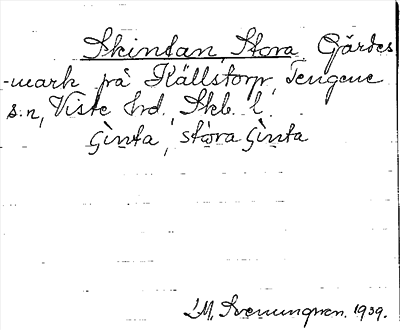 Skintan, Stora Gärdes
-mark på Källstorp, Tengene
s:n, Viste hrd., Skb. l.
ġìnta, stòra ġìnta
LM. Svenungsson. 1939.